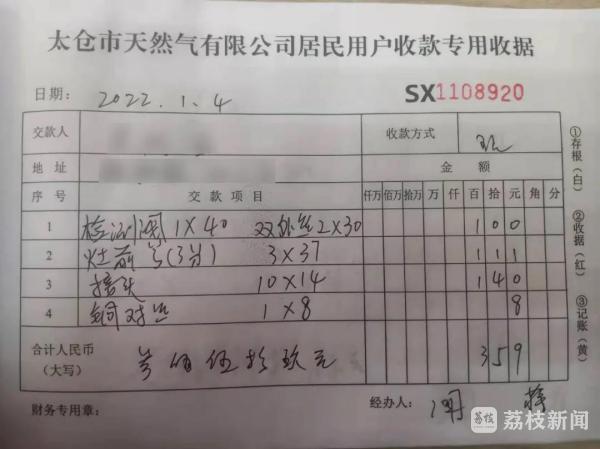 太仓市天然气有限公司居民用户收款专用收据
日期： 2022.1.4 SX1108920
交款人 收款方式 现
地址 金额
序号 交款项目 仟万 佰万 拾万 万 仟 百 拾 元 角 分
1 检测阀 1×40 双外丝 2×30 100
2 灶前 (3分) 3×37 111
3 接头 10×14 140
4 铜对丝 1×8 8
合计人民币 叁佰伍拾玖元 359
(大写)
财务专用章： 经办人：
①存根(白) ②收据(红) ③记账(黄)
荔枝 荔枝新闻